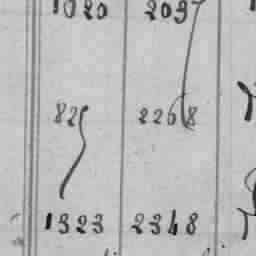 1020 2097
825 2268
1323 2348